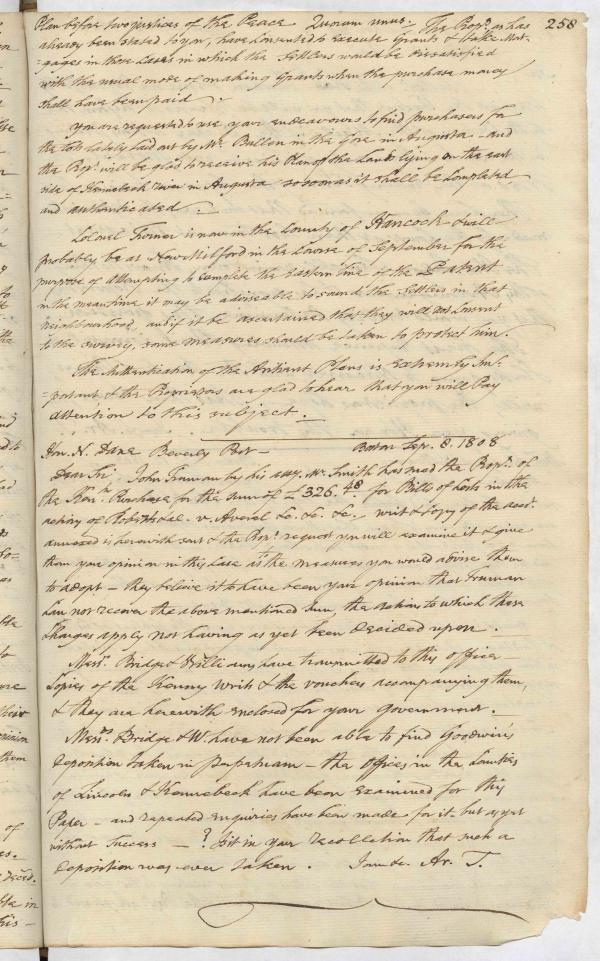 258
Plan before two justices of the Peace Quorum unus. The Prop.rs as has
already been stated to you, have consented to execute Grants & take Mort-
-gages in those cases in which the Settlers would be dissatisfied
with the usual mode of making Grants when the purchase money
shall have been paid.
You are requested to use your endeavours to find purchasers for
the lots lately laid out by Mr. Bullen in the Gore in Augusta - and
the Prop.rs will be glad to receive his Plan of the Lands lying on the east
side of Kennebeck river in Augusta so soon as it shall be completed,
and authenticated.
Colonel Turner is now in the County of Hancock & will
probably be at New Milford in the course of September for the
purpose of attempting to complete the Eastern line of the Patent
in the meantime it may be adviseable to sound the Settlers in that
neighbourhood, and if it be ascertained that they will not consent
to the survey, some measures should be taken to protect him.
The Authentication of the Antient Plans is extremly Im-
-portant & the Proprietors are glad to hear that you will Pay
attention to this subject.
Hon. N. Dane Beverly Post - Boston Sep. 8. 1808
Dear Sir, John Truman by his atty. Mr. Smith has sued the Prop.rs of
the Ken. Purchase for the sum of £326.48 for Bills of Costs in the
action of Roberts dal. v. Averal &c. &c. &c. writ & copy of the acct.
annexed is herewith sent & the Prop.rs request you will examine it & give
them your opinion in this case as to the measures you would advise them
to adopt - they believe it to have been your opinion that Truman
can not recover the above mentioned sum, the actions to which these
charges apply not having as yet been decided upon.
Mess.rs Bridge & Williams have transmitted to this office
Copies of the Kenny writs & the vouchers accompanying them,
& they are herewith enclosed for your Government.
Mess.rs Bridge & W. have not been able to find Goodwin's
deposition taken in perpetuam - the offices in the Counties
of Lincoln & Kennebeck have been examined for this
Paper - and repeated enquiries have been made for it - but as yet
without success - ? Is it in your recollection that such a
deposition was ever taken. I am &c. Ar. T.